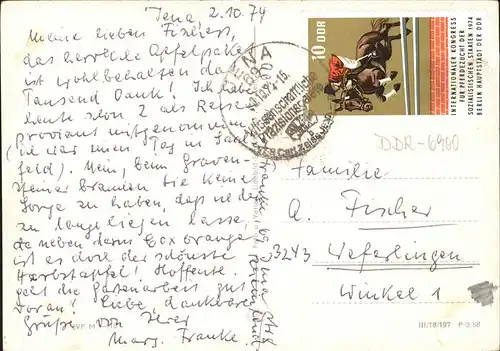 Jena, 2.10.74
Meine lieben Fischers,
das herrliche Apfelpaket
ist wohlbehalten da.
Tausend Dank! Ich habe
heute schon 2 als Reise
proviant mitgenommen
(ich war einen Tag in Saal
feld). Nein, beim Graven-
steiner brauchen Sie keine
Sorge zu haben, daß ich der
zu lange liegen lasse.
da neben dem Cox orange
ist es doch der schönste
Herbstapfel! Hoffentl.
geht die Gartenarbeit gut
voran! Liebe, dankbare
Grüße von Ihrer
Marg. Franke.
JENA
10 DDR
INTERNATIONALER KONGRESS
FÜR PFERDEZUCHT DER
SOZIALISTISCHEN STAATEN 1974
BERLIN HAUPTSTADT DER DDR
DDR-6900
Familie
A. Fischer
3243 Weferlingen
Winkel 1
III/18/197 P 3/68